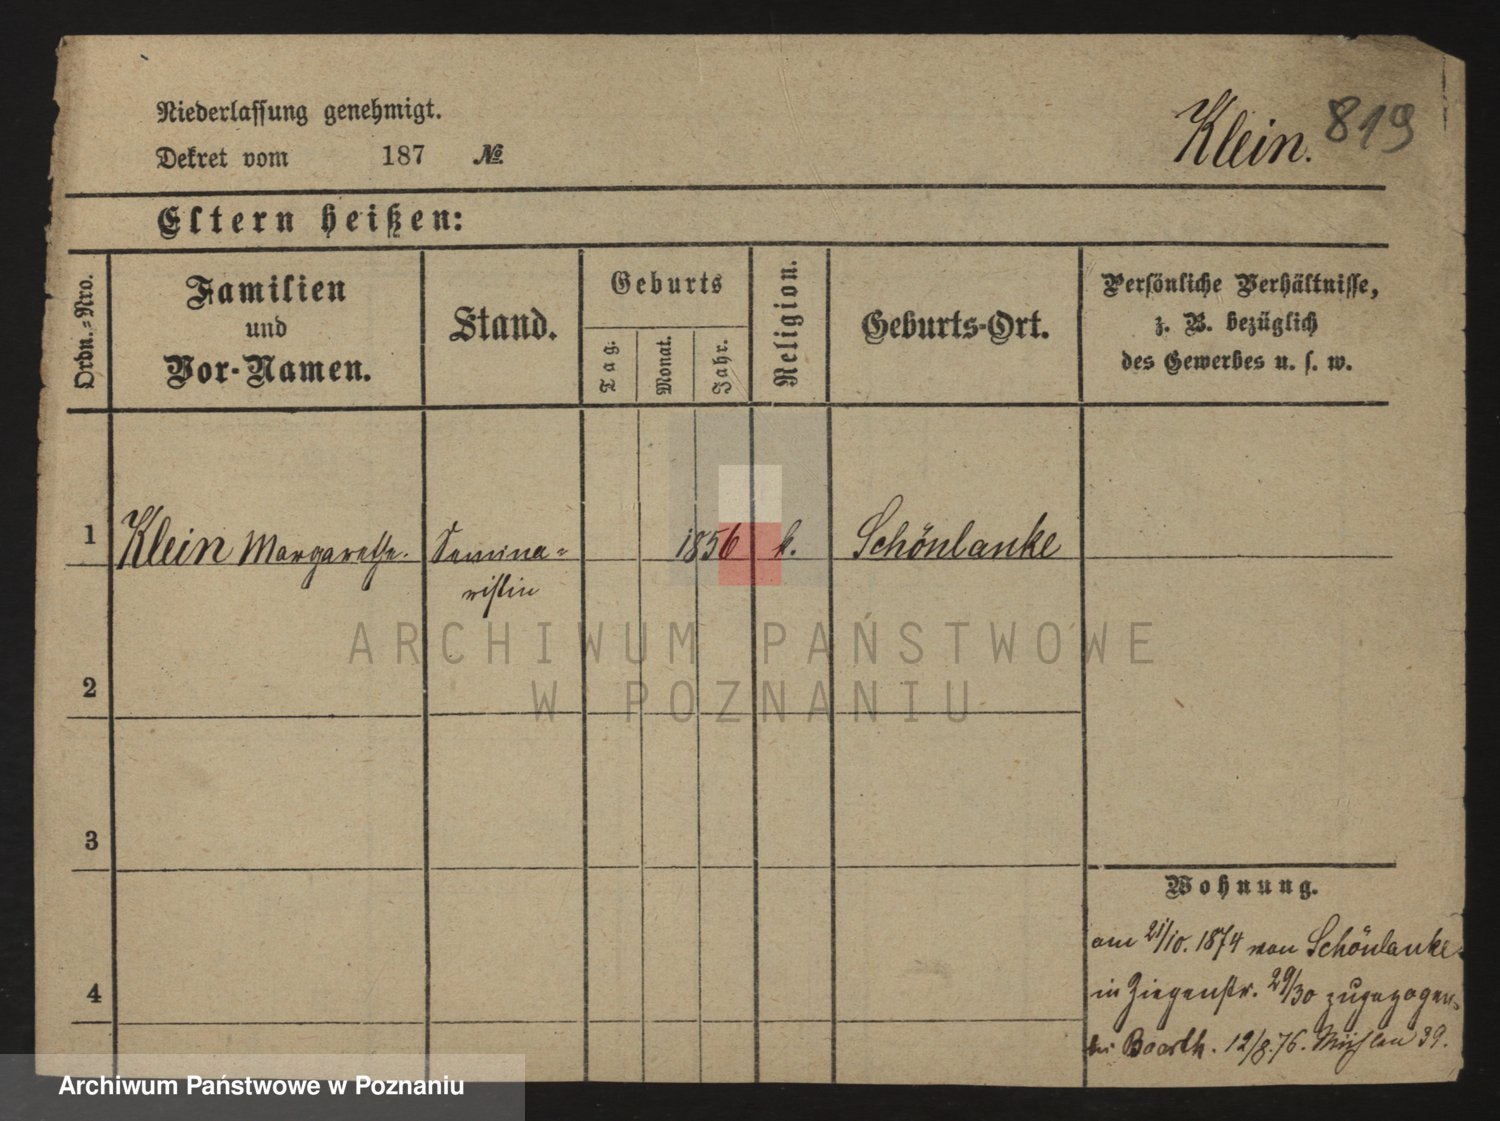 Niederlassung genehmigt.
Dekret vom 187 №
Klein. 819
Eltern heißen:
Ordn.=Nro.
Familien
und
Vor-Namen.
Stand.
Geburts
Tag.
Monat.
Jahr.
Religion.
Geburts-Ort.
Persönliche Verhältnisse,
z. B. bezüglich
des Gewerbes u. s. w.
1 Klein Margarethe. Semina= 1856 k. Schönlanke
ristin
ARCHIWUM PAŃSTWOWE
W POZNANIU
2
3
4
Wohnung.
am 21/10. 1874 von Schönlanke
in Ziegenstr. 29/30 zugezogen
bei 12/8.76. Mühlen 39.
Archiwum Państwowe w Poznaniu